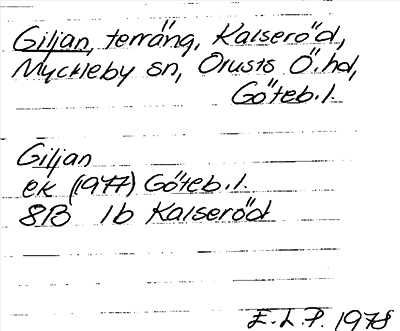 Giljan, terräng, Kalseröd,
Myckleby sn, Orusts Ö. hd,
Göteb. l.
Giljan
ek (1977) Göteb. l.
8B 1b Kalseröd
E.L.P. 1978